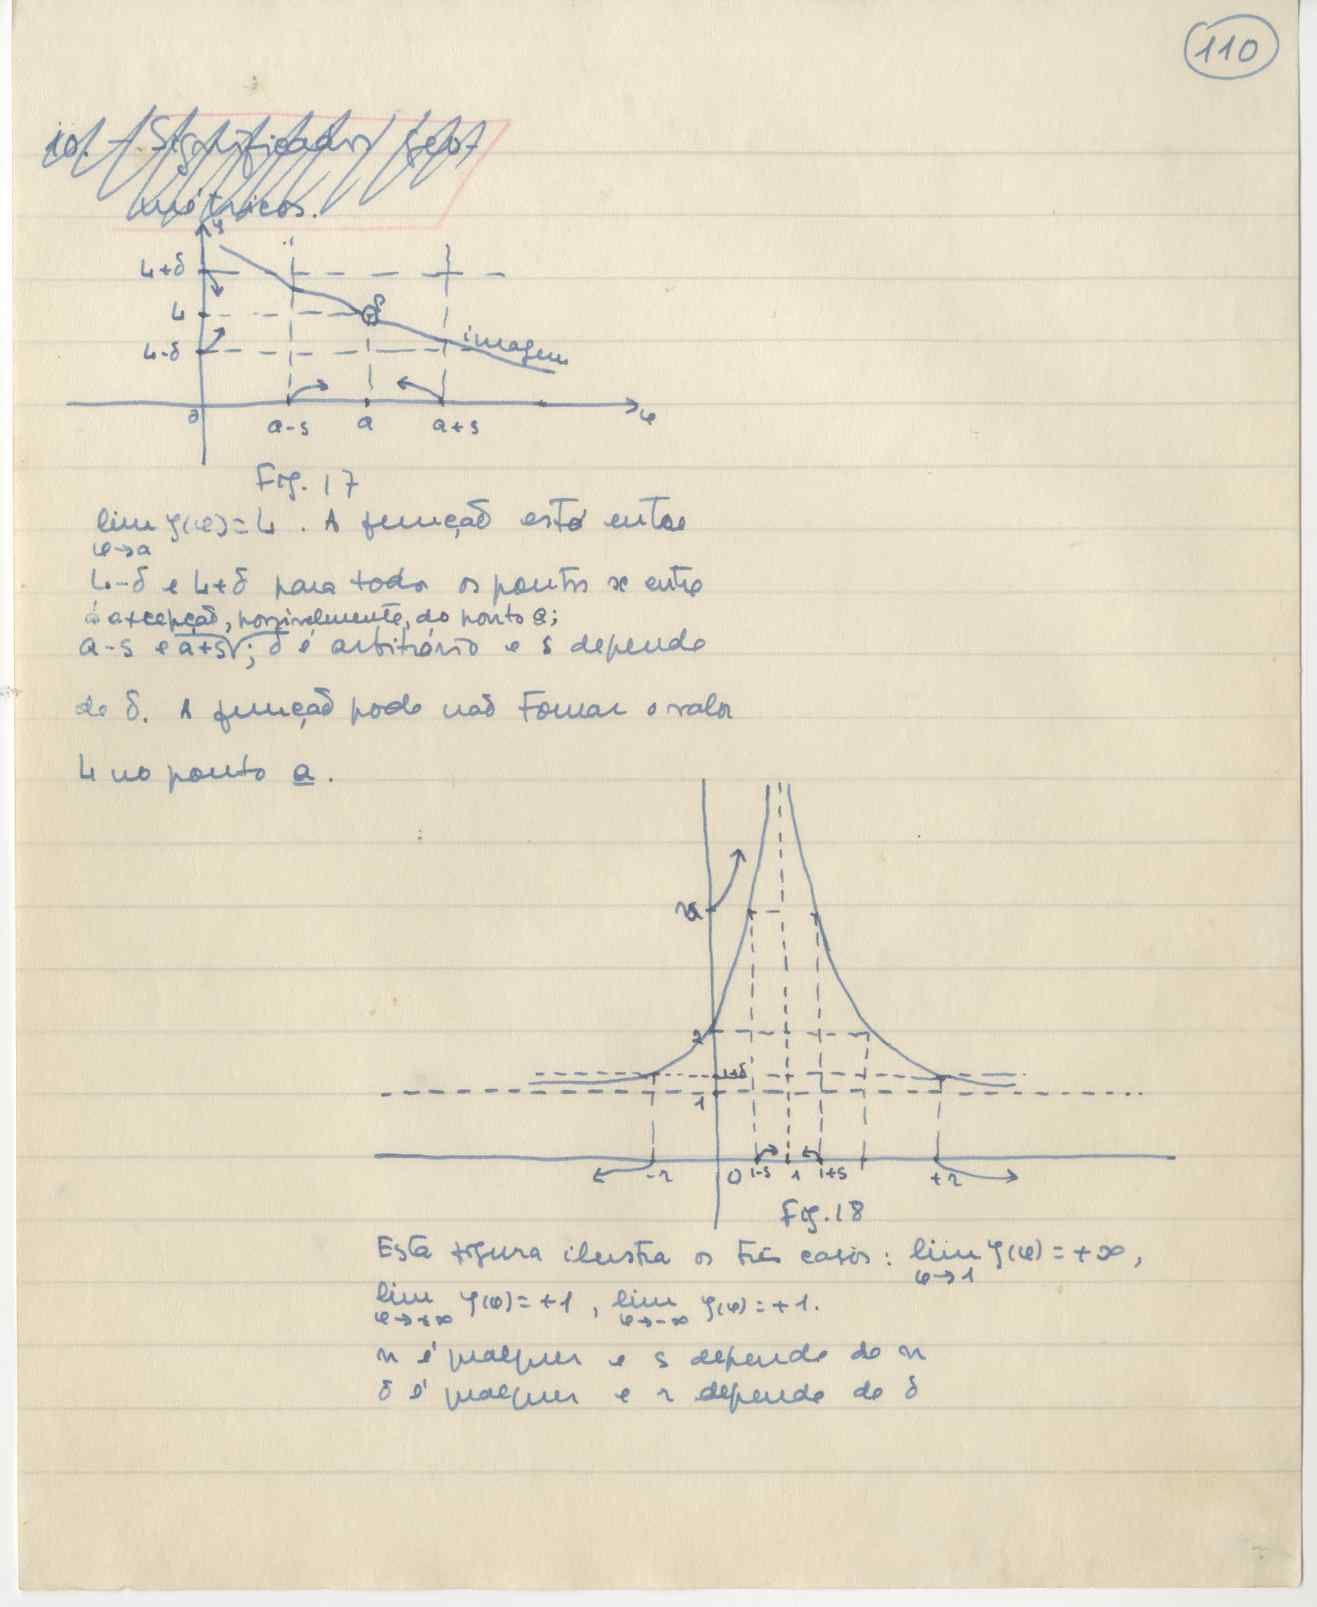 110
10. - Significados geo-
métricos.
y
L+δ
L
L-δ
imagem
0
a-s
a
a+s
x
Fig. 17
lim f(x)=L. A função está entre
x→a
L-δ e L+δ para todos os pontos x entre
à excepção, possivelmente, do ponto a;
a-s e a+s; δ é arbitrário e s depende
de δ. A função pode não tomar o valor
L no ponto a.
n
2
1+δ
1
-r
0
1-s
1
1+s
+r
Fig. 18
Esta figura ilustra os três casos: lim f(x)=+∞,
x→1
lim f(x)=+1, lim f(x)=+1.
x→+∞ x→-∞
n é qualquer e s depende de n
δ é qualquer e r depende de δ